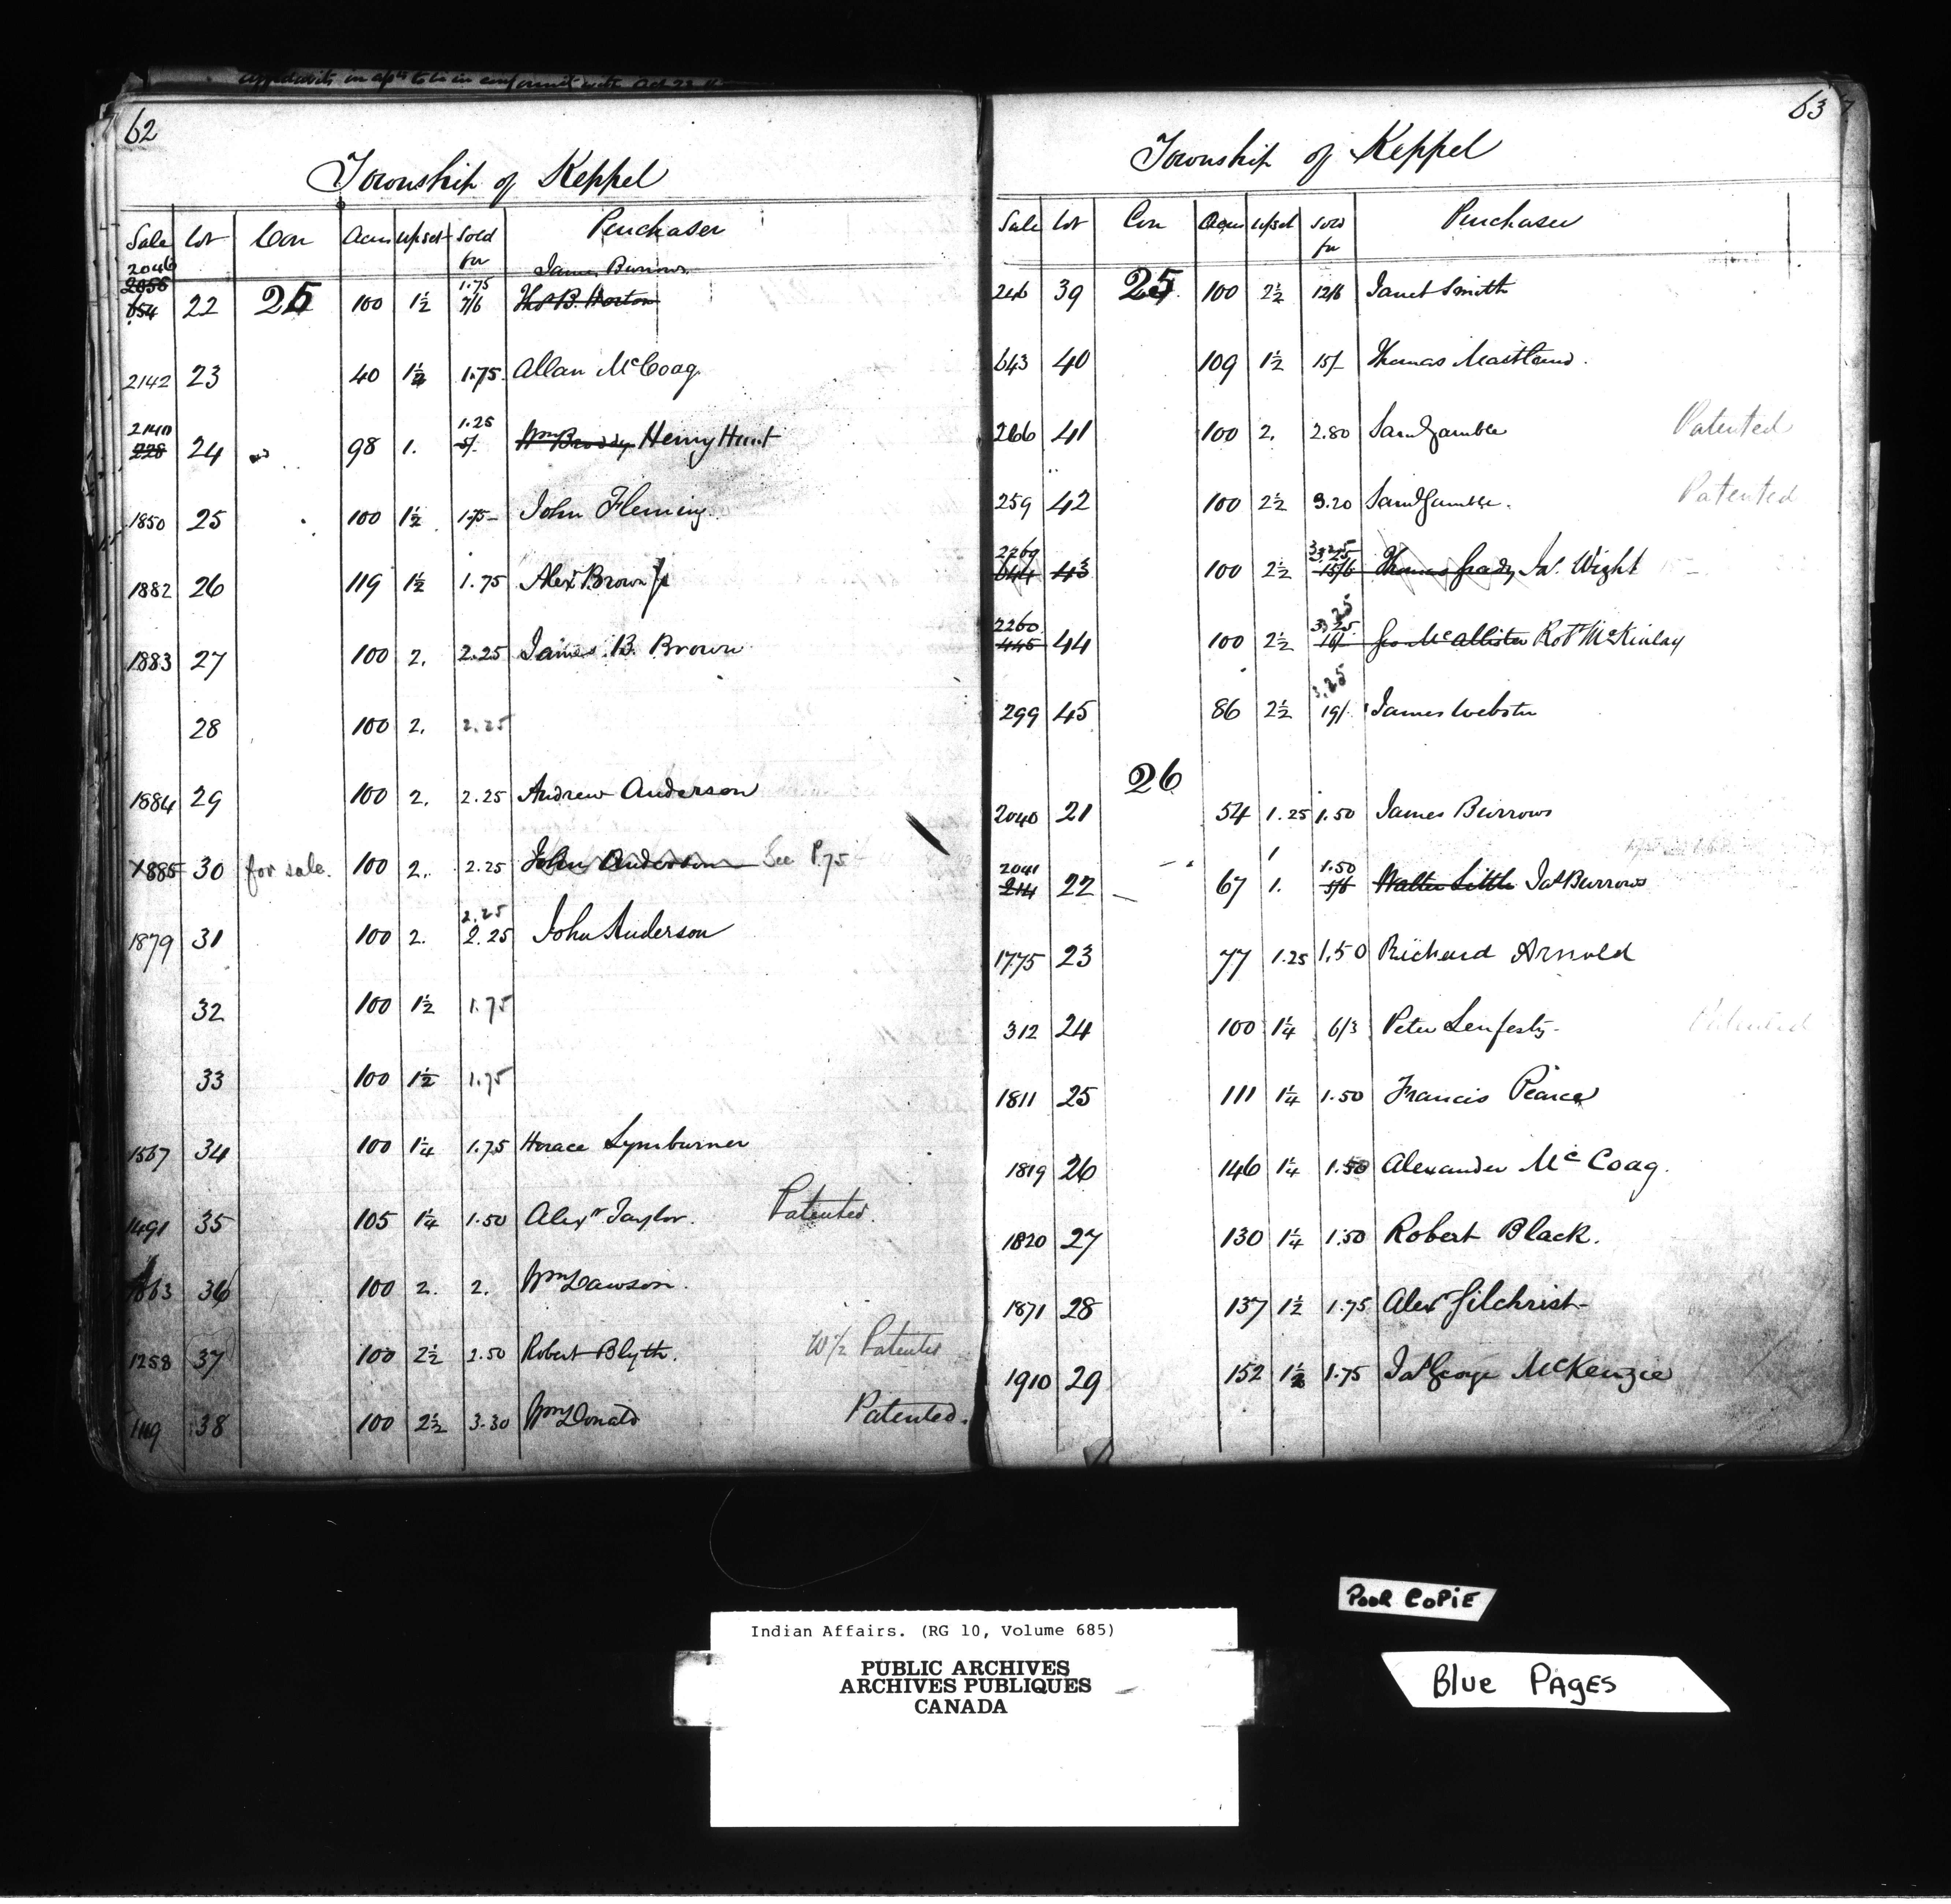 affidavits in apts to be in conformity with Act 23
62
Township of Keppel
Sale Lot Con Acres upset Sold for Purchaser
2046 1.75 James Burrows
2058
654 22 25 100 1½ 7/6 Thos B. Horton
2142 23 40 1½ 1.75 Allan McCoag
2140 1.25
228 24 98 1. 5/- Wm Broddy Henry Hunt
1850 25 100 1½ 1.75 John Fleming
1882 26 119 1½ 1.75 Alex Brown Jr
1883 27 100 2. 2.25 James B. Brown
28 100 2. 2.25
1884 29 100 2. 2.25 Andrew Anderson
1885 30 for sale. 100 2. 2.25 John Anderson See P. 75
2.25
1879 31 100 2. 2.25 John Anderson
32 100 1½ 1.75
33 100 1½ 1.75
1567 34 100 1¼ 1.75 Horace Lymburner
1491 35 105 1¼ 1.50 Alexr Taylor. Patented.
1863 36 100 2. 2. Wm Dawson.
1258 37 100 2½ 2.50 Robert Blyth. W½ Patented
1119 38 100 2½ 3.30 Wm Donald Patented.
63
Township of Keppel
Sale Lot Con Acres upset Sold for Purchaser
246 39 25 100 2½ 12/6 Janet Smith
643 40 109 1½ 15/- Thomas Maitland.
266 41 100 2. 2.80 Saml Gamble Patented
259 42 100 2½ 3.20 Saml Gamble. Patented
2269 3.25
644 43 100 2½ 15/6 Thomas Grady Js. Wight
2260 3.25
445 44 100 2½ 16/- Geo McAllister Robt McKinlay
3.25
299 45 86 2½ 19/- James Webster
26
2040 21 54 1.25 1.50 James Burrows
2041 1.50
214 22 67 1. 5/6 Walter Little Jas Burrows
1775 23 77 1.25 1.50 Richard Arnold
312 24 100 1¼ 6/3 Peter Lenfesty. Patented
1811 25 111 1¼ 1.50 Francis Pearce
1819 26 146 1¼ 1.50 Alexander McCoag.
1820 27 130 1¼ 1.50 Robert Black.
1871 28 137 1½ 1.75 Alexr Gilchrist
1910 29 152 1½ 1.75 Jas George McKenzie
POOR COPIE
Indian Affairs. (RG 10, Volume 685)
PUBLIC ARCHIVES
ARCHIVES PUBLIQUES
CANADA
Blue PAGES